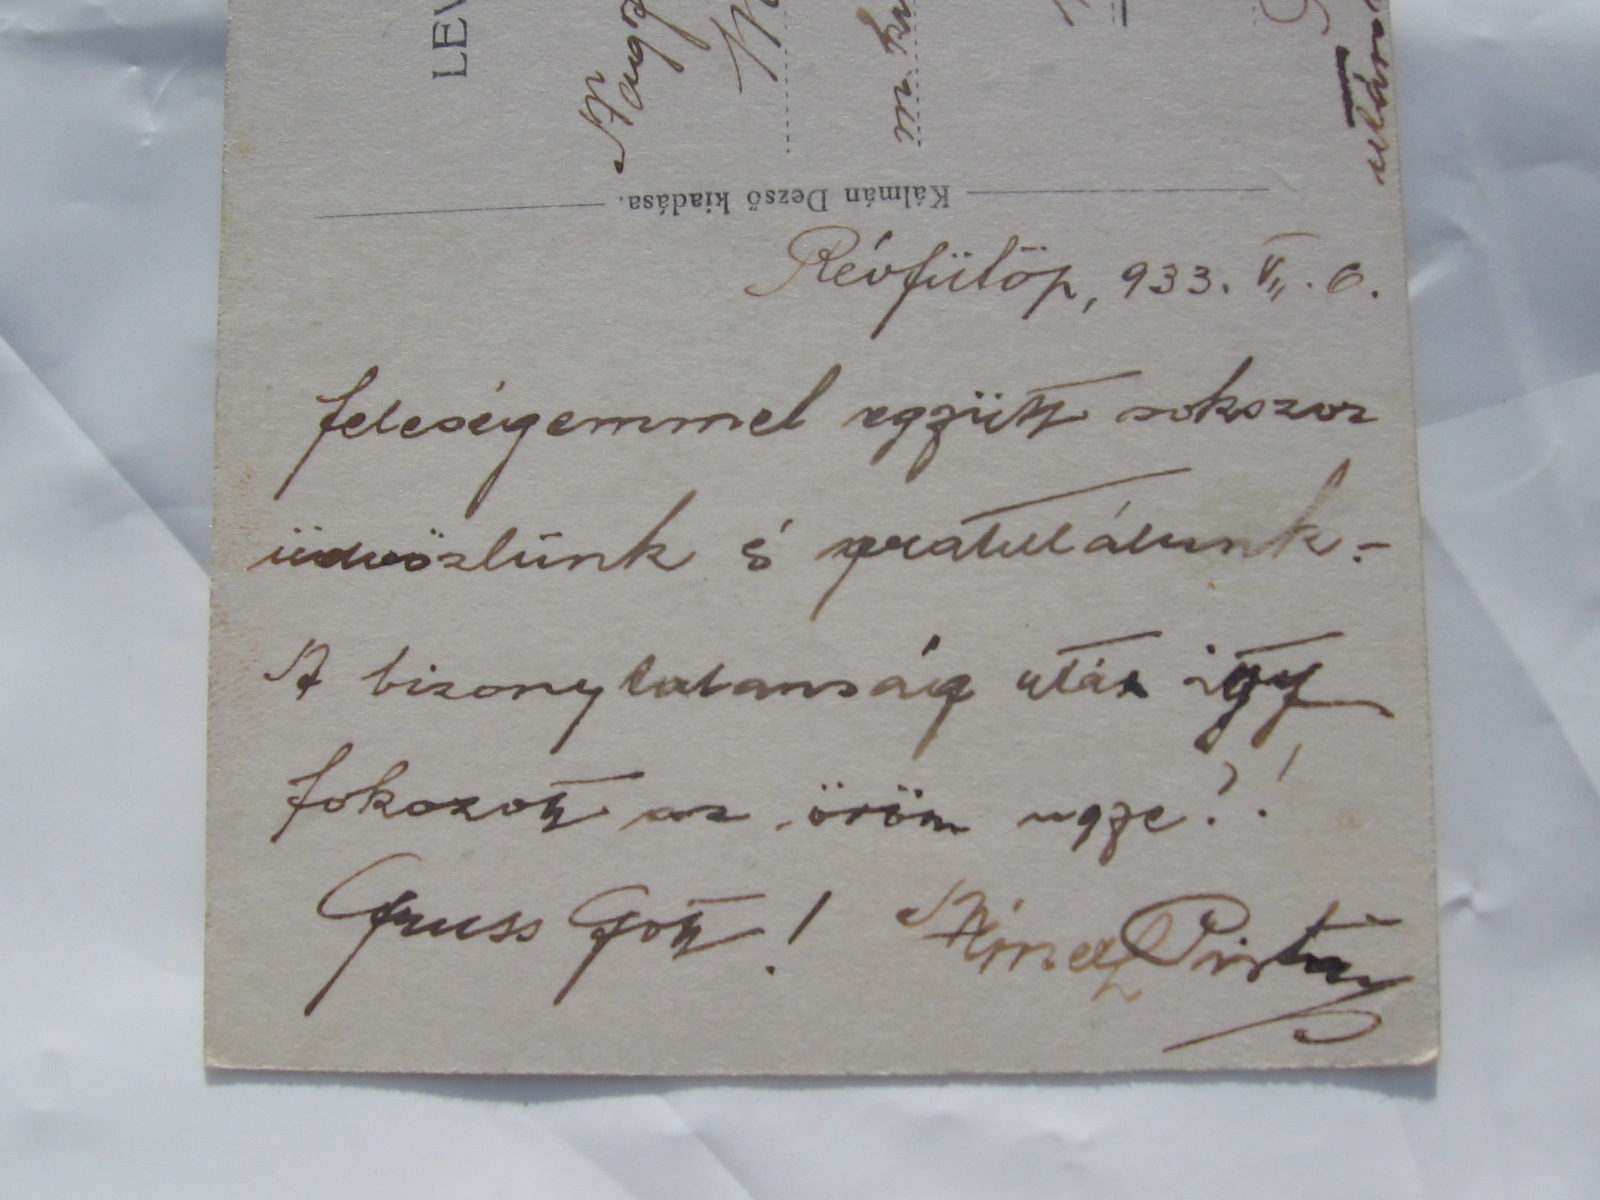 LEV
Kálmán Dezső kiadása.
Révfülöp, 933. VII. 6.
feleségemmel együtt sokszor
üdvözlünk és gratulálunk.-
A bizonytalanság után így
fokozott az öröm ugye?!
Gruss Gott!